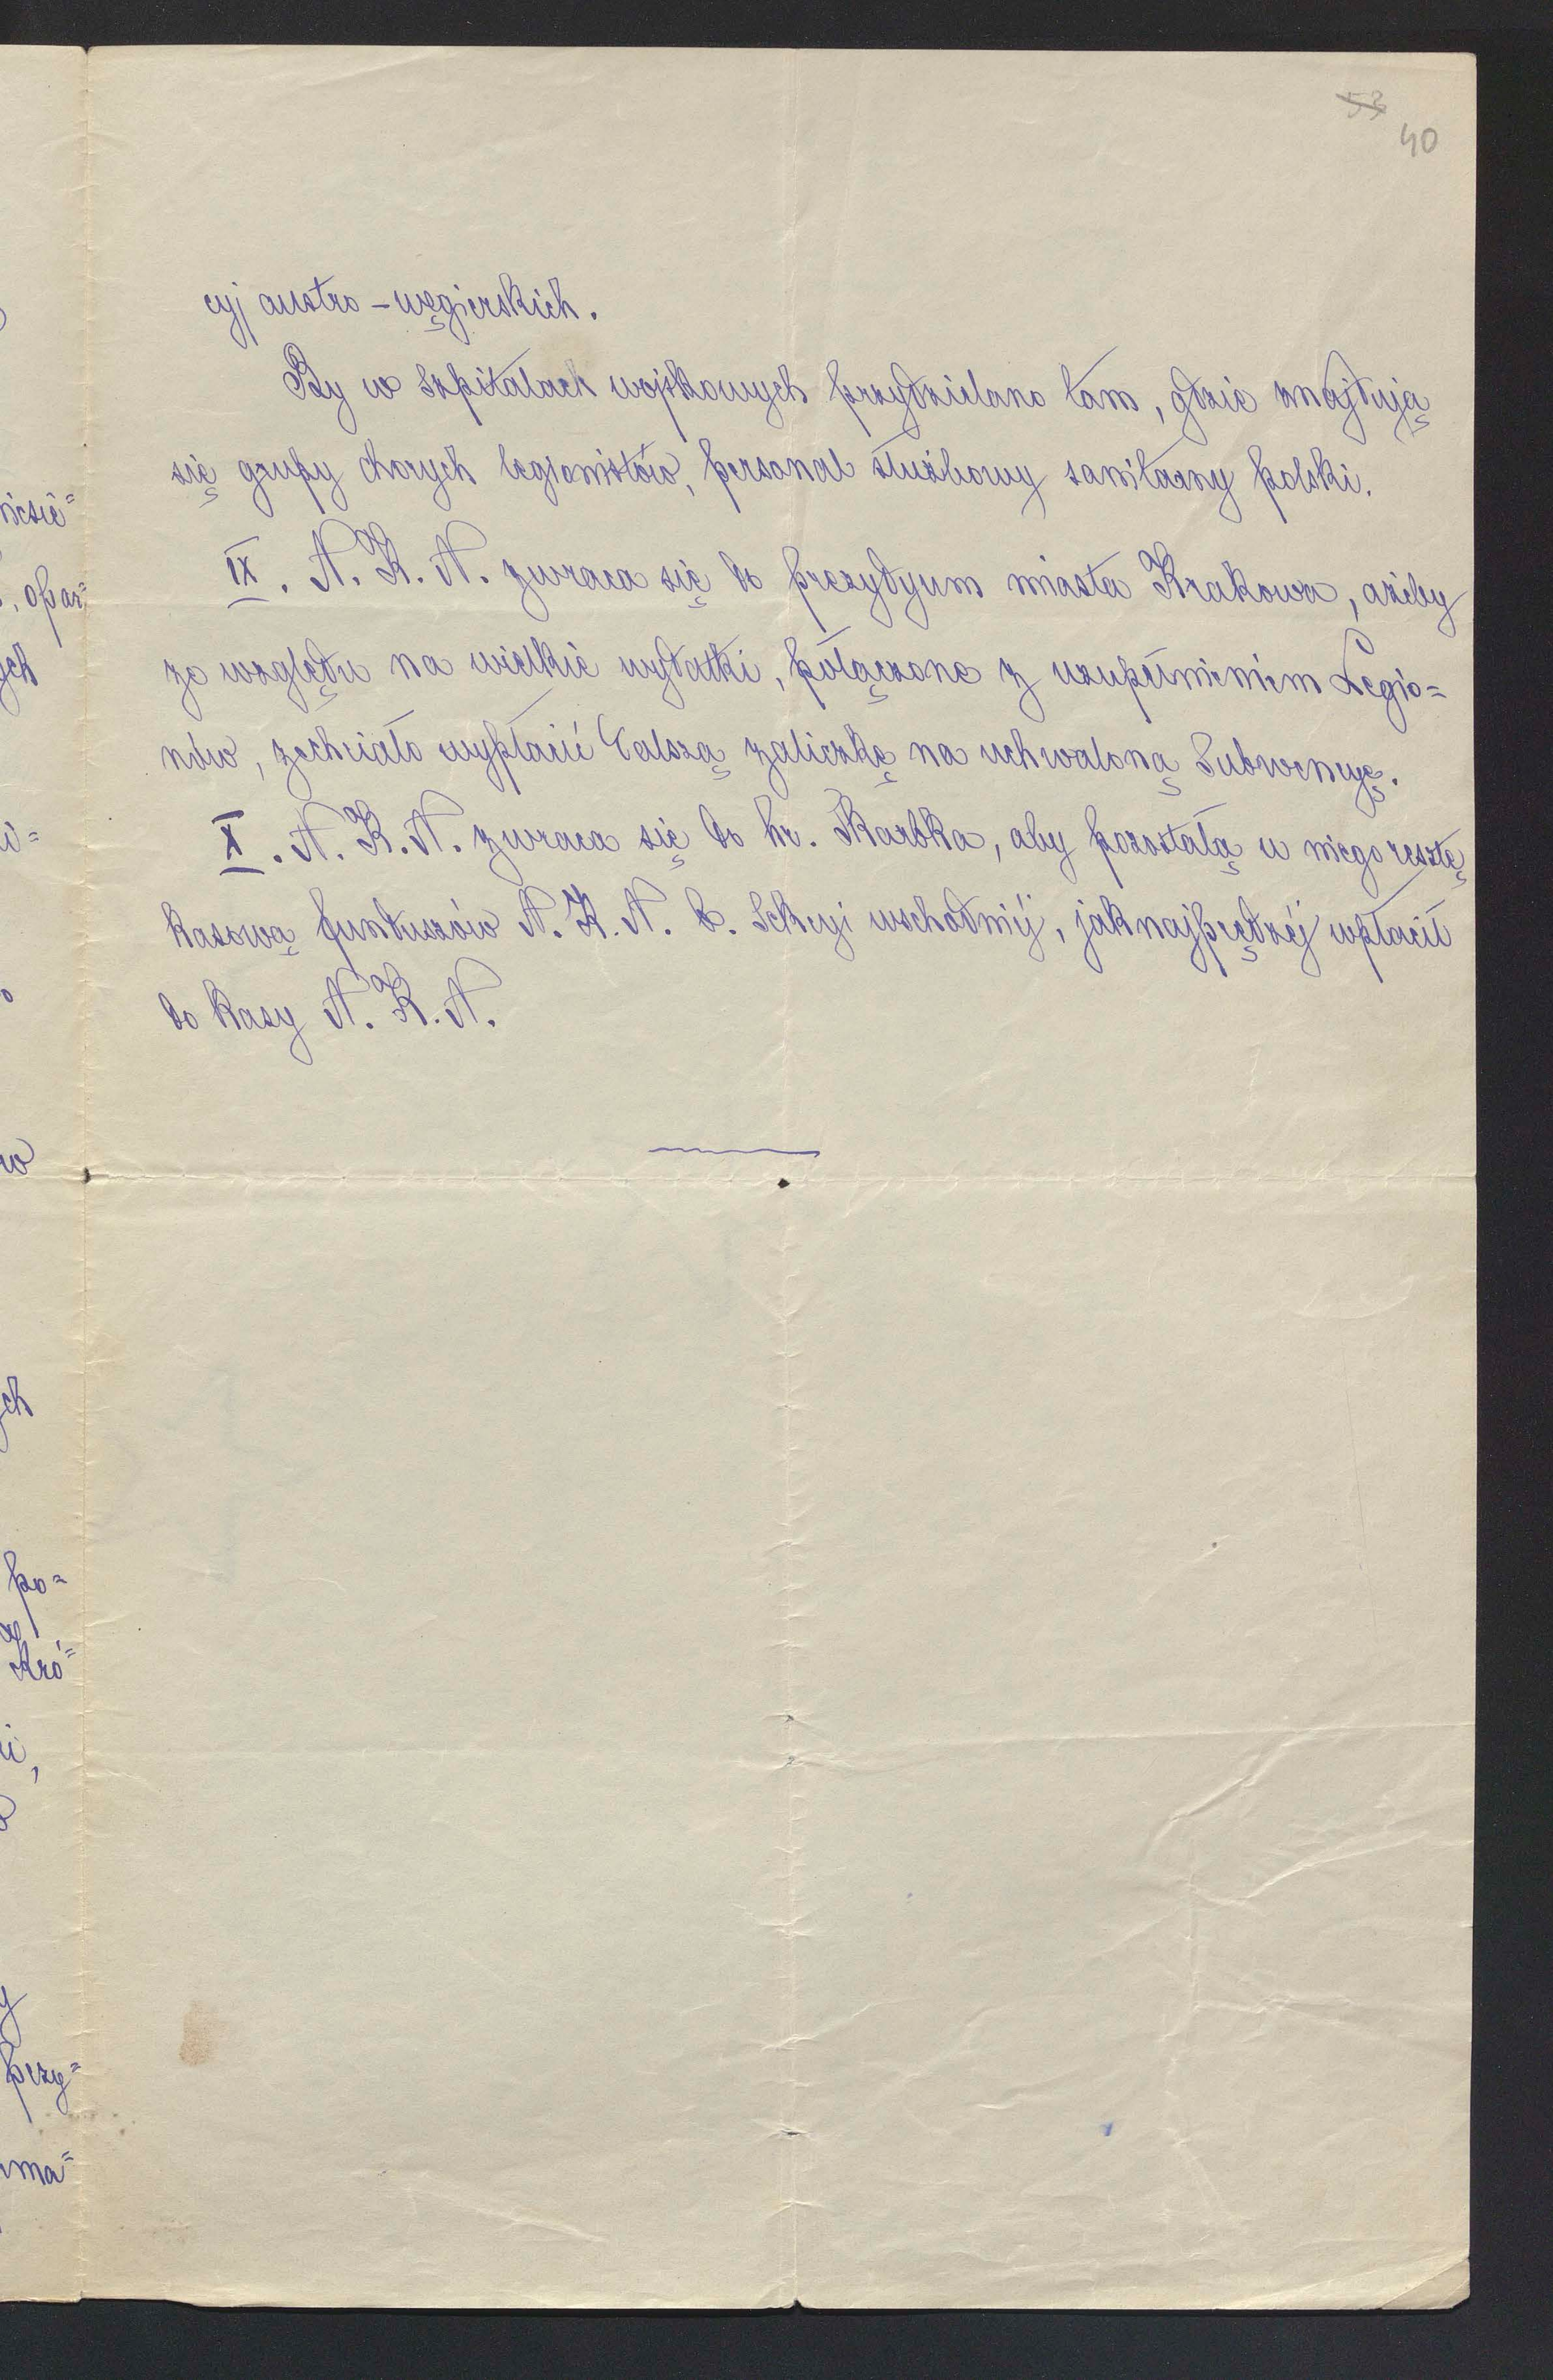 53
40
cyj austro-węgierskich.
By w szpitalach wojskowych przydzielano tam, gdzie znajdują
się grupy chorych legionistów, personal służbowy sanitarny polski.
IX. N. K. N. zwraca się do prezydyum miasta Krakowa, ażeby
ze względu na wielkie wydatki, połączone z uzupełnieniem Legio=
nów, zechciało wypłacić dalszą zaliczkę na uchwaloną Subwencyę.
X. N. K. N. zwraca się do hr. Skarbka, aby pozostałą u niego resztę
kasową funduszów N. K. N. b. Sekcyi wschodniej, jaknajprędzej wpłacił
do kasy N. K. N.
niesie=
, opar=
ych
w
ych
po=
Kró=
przy=
ma=